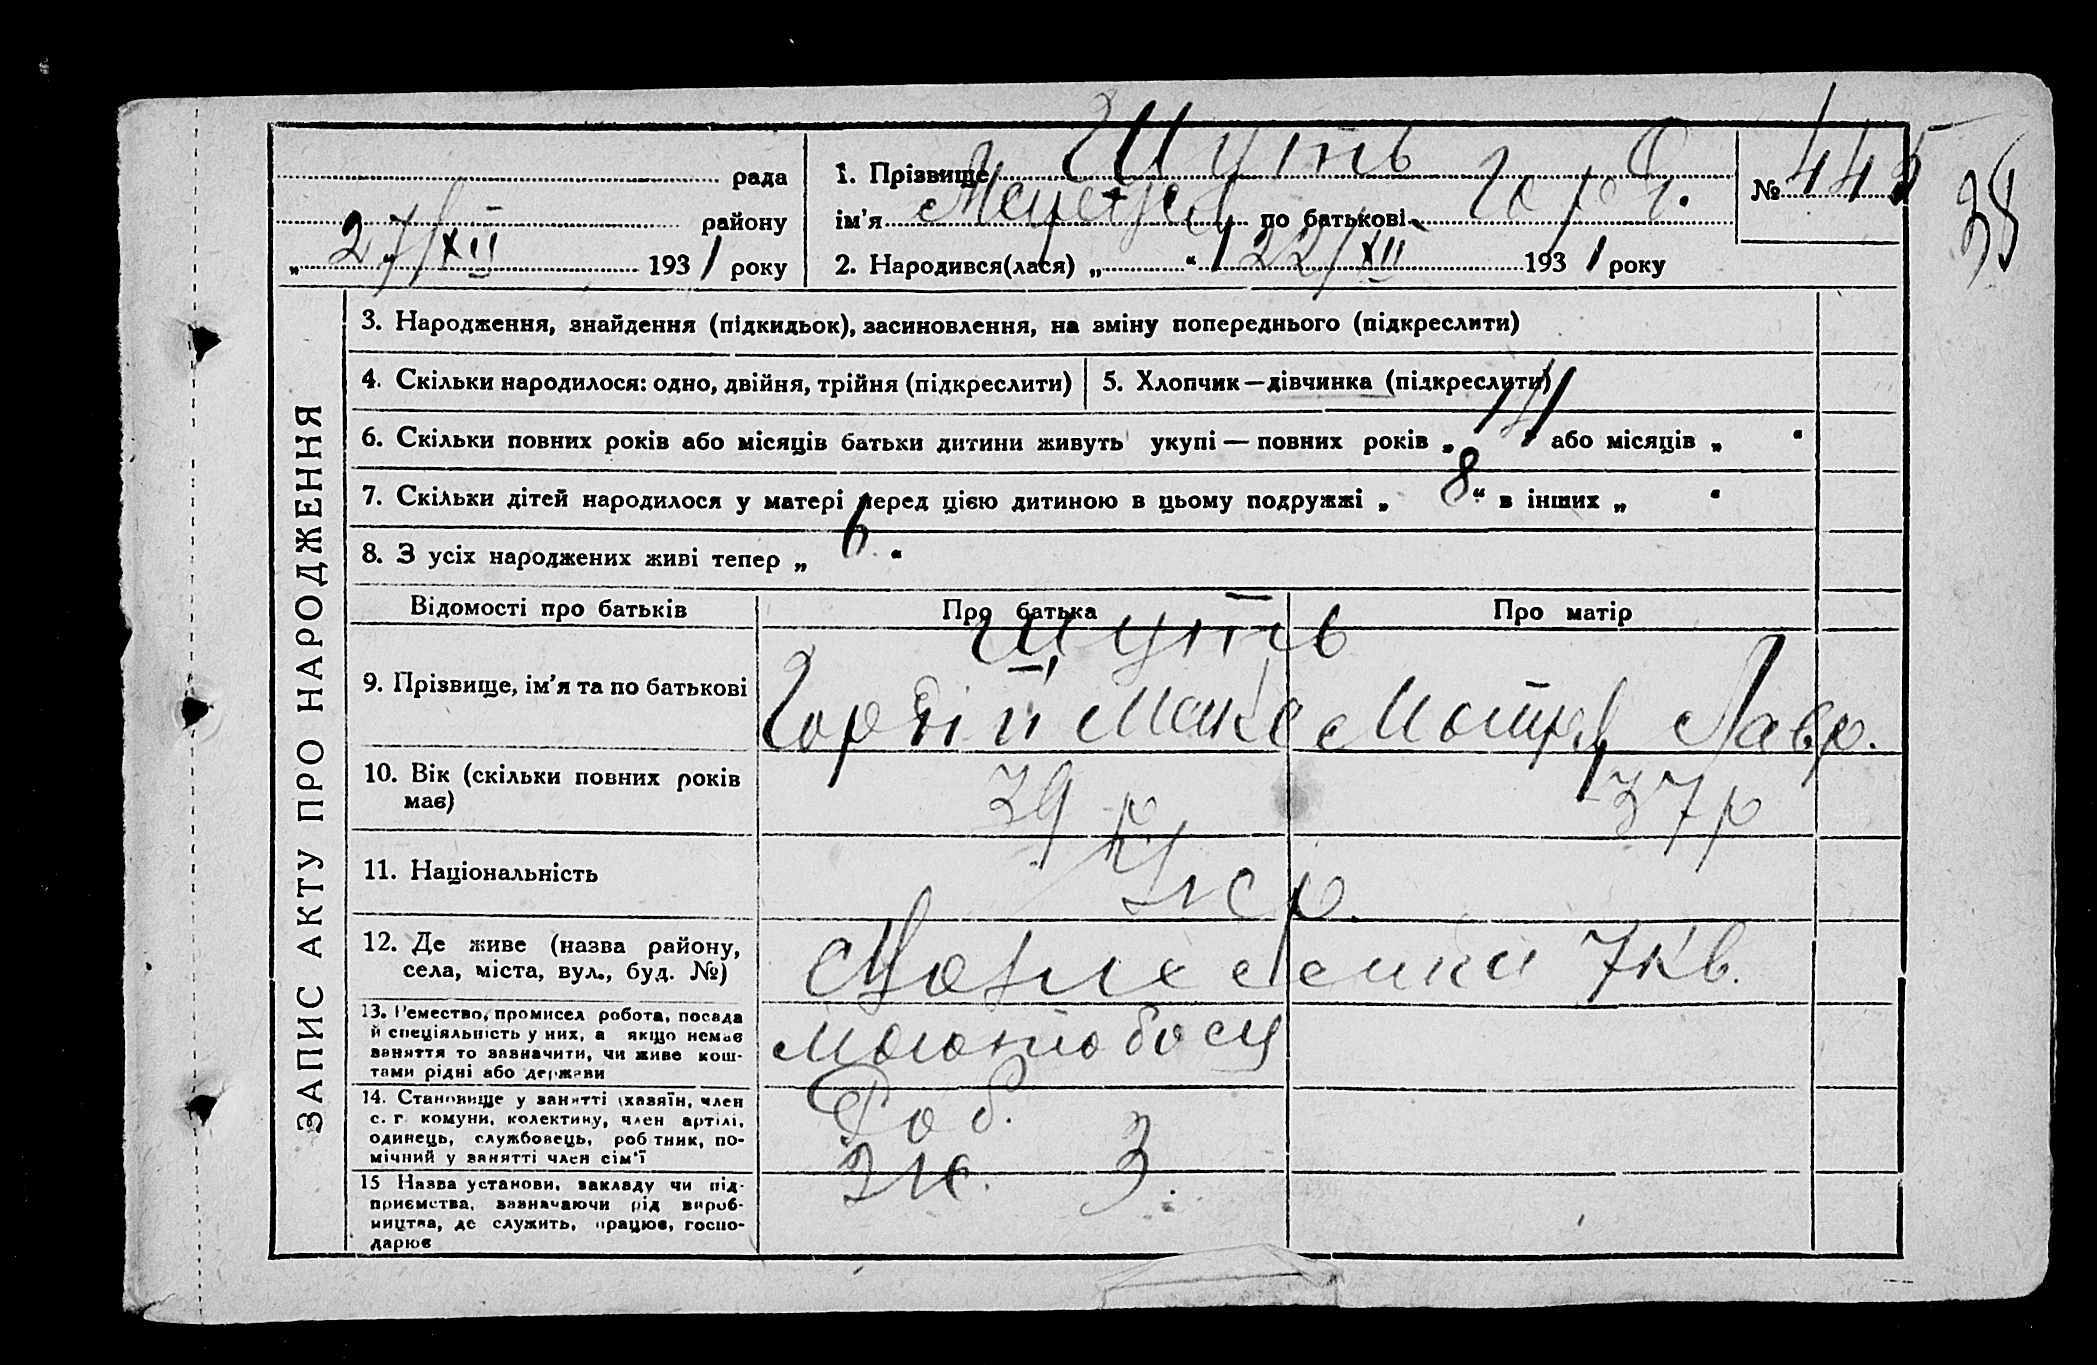 рада
1. Прізвище Шуть
№ 445
38
району
ім'я по батькові Горд.
„27/XII“ 1931 року
2. Народився(лася) „ “ 22/XII 1931 року
ЗАПИС АКТУ ПРО НАРОДЖЕННЯ
3. Народження, знайдення (підкидьок), засиновлення, на зміну попереднього (підкреслити)
4. Скільки народилося: одно, двійня, трійня (підкреслити)
5. Хлопчик—дівчинка (підкреслити)
6. Скільки повних років або місяців батьки дитини живуть укупі — повних років „14“ або місяців „ “
7. Скільки дітей народилося у матері перед цією дитиною в цьому подружжі „8“ в інших „ “
8. З усіх народжених живі тепер „6“
Відомості про батьків
Про батька
Про матір
9. Прізвище, ім'я та по батькові
Шуть
Гордій Макс
Мотря Лавр.
10. Вік (скільки повних років
має)
39 р
37 р
11. Національність
Укр.
12. Де живе (назва району,
села, міста, вул., буд. №)
7 кв.
13. Ремество, промисел робота, посада
й спеціяльність у них, а якщо немає
заняття то зазначити, чи живе кош-
тами рідні або держави
Молотобоєц
14. Становище у занятті (хазяїн, член
с. г. комуни, колективу, член артілі,
одинець, службовець, робітник, по-
мічний у занятті член сім'ї
Роб.
15 Назва установи, закладу чи під-
приємства, зазначаючи рід вироб-
ництва, де служить, працює, госпо-
дарює
З.